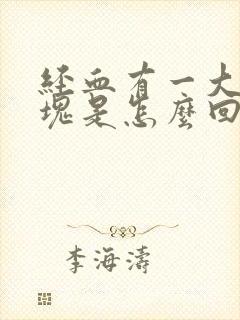 經血有一大
塊是怎麼回
李海濤